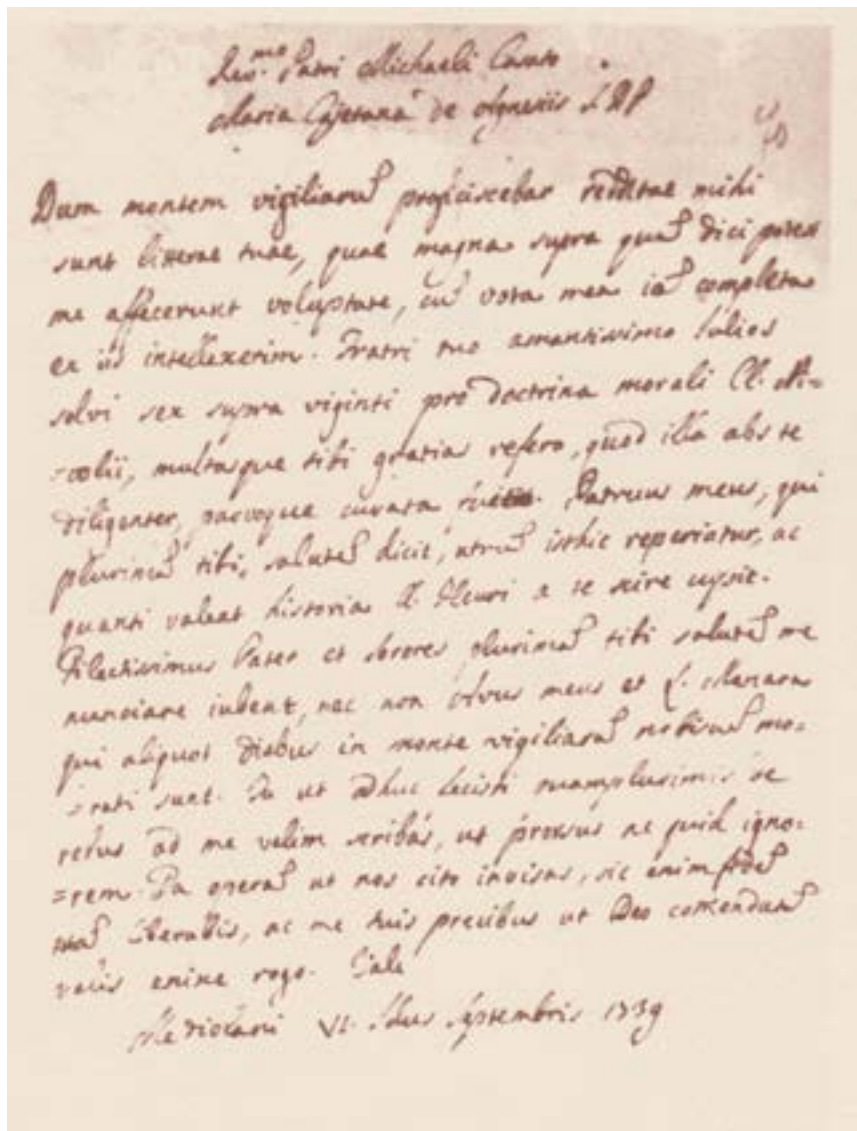 Rev.mo Patri Michaeli Casato
Maria Cajetana de Agnesiis S D P
Dum montem vigiliarū proficiscebar redditae mihi
sunt litterae tuae, quae magna supra quā dici potest
me affecerunt voluptate, cū vota mea iā completa
ex iis intellexerim. Fratri tuo amantissimo Iulios
solvi sex supra viginti pro doctrina morali Cl.
multasque tibi gratias refero, quod illa abs te
diligenter, parvoque curata. Patruus meus, qui
plurimā tibi, salutē dicit, utrū isthic reperiatur, ac
quanti valeat historia Cl. Fleuri a te scire cupit.
Dilectissimus Pater et sorores plurimā tibi salutē me
nunciare iubent, nec non Avus meus et
qui aliquot diebus in monte vigiliarū nobiscū mo=
=rati sunt. Tu ut adhuc fecisti quamplurimis de
rebus ad me velim scribas, ut prorsus ne quid igno=
=rem. Da operā ut nos cito invisas, sic enim fidē
tuā liberabis, ac me tuis precibus ut Deo comendatā
velis enixe rogo. Vale
Mediolani VI. Idus Septembris 1739